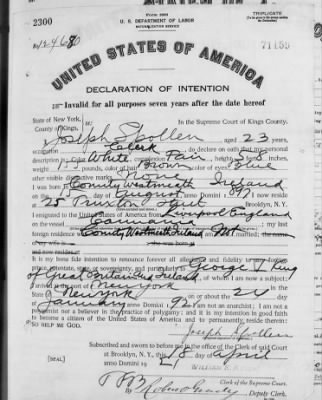 Form 2203
TRIPLICATE
2300
U. S. DEPARTMENT OF LABOR
NATURALIZATION SERVICE
71155
UNITED STATES OF AMERICA
DECLARATION OF INTENTION
Invalid for all purposes seven years after the date hereof
State of New York, ss:
In the Supreme Court of Kings County.
County of Kings,
Joseph Spollen aged 23 years,
occupation Clerk, do declare on oath that my personal
description is: Color White, complexion Fair, height feet 8 inches,
weight pounds, color of hair Brown, color of eyes Blue
other visible distinctive marks None
I was born in County Westmeath Ireland
on the day of August, anno Domini 1 ; I now reside
at 25 Street
I emigrated to the United States of America from Liverpool England
on the vessel ; my last
foreign residence was County Westmeath Ireland
It is my bona fide intention to renounce forever all allegiance and fidelity to any foreign
prince, potentate, state, or sovereignty, and particularly to George V King
of Great Britain and Ireland, of whom I am now a subject;
I arrived at the port of New York
State of New York, on or about the day
of anno Domini 1 ; I am not an anarchist; I am not a
polygamist nor a believer in the practice of polygamy; and it is my intention in good faith
to become a citizen of the United States of America and to permanently reside therein:
SO HELP ME GOD.
Joseph Spollen
Subscribed and sworn to before me in the office of the Clerk of said Court
[SEAL]
at Brooklyn, N. Y., this 18 day of April
anno Domini 19
Clerk of the Supreme Court.
By , Deputy Clerk.